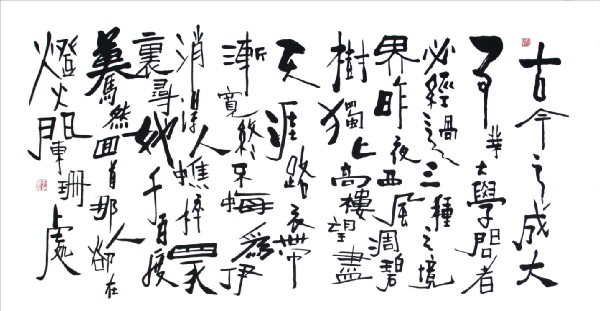 古今之成大
事業大學問者
必經過之三種之境
界昨夜西風凋碧
樹獨上高樓望盡
天涯路衣帶
漸寬終不悔為伊
消得人憔悴眾
裏尋他千百度
驀然回首那人卻在
燈火闌珊處